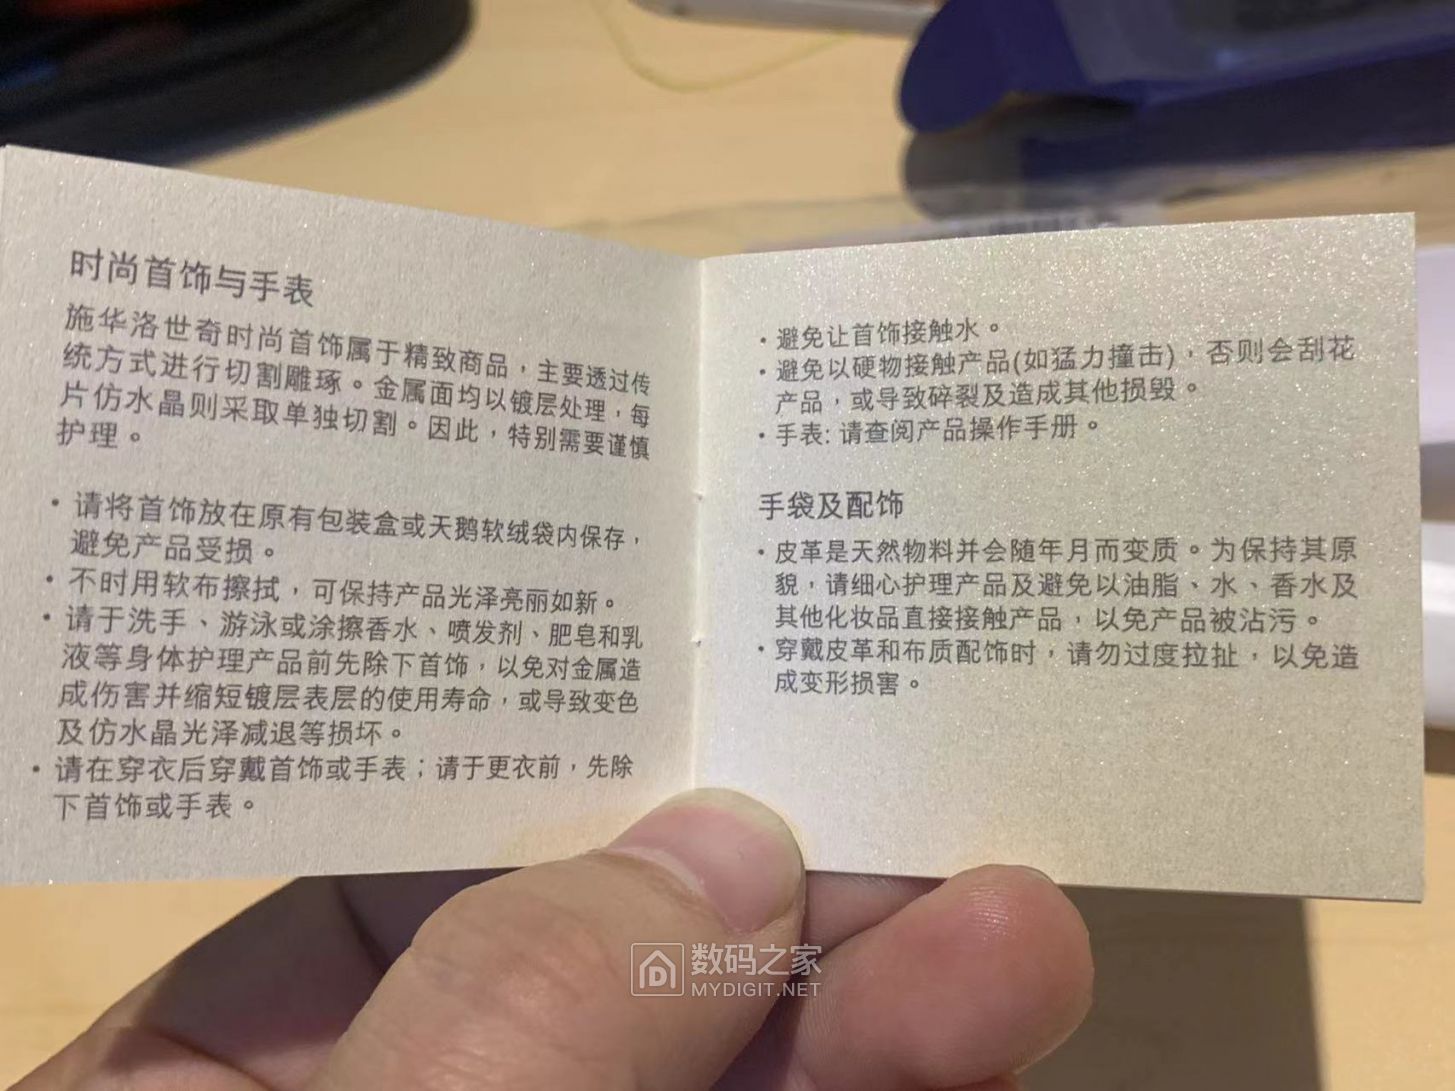 时尚首饰与手表
施华洛世奇时尚首饰属于精致商品，主要透过传
统方式进行切割雕琢。金属面均以镀层处理，每
片仿水晶则采取单独切割。因此，特别需要谨慎
护理。
• 请将首饰放在原有包装盒或天鹅软绒袋内保存，
避免产品受损。
• 不时用软布擦拭，可保持产品光泽亮丽如新。
• 请于洗手、游泳或涂擦香水、喷发剂、肥皂和乳
液等身体护理产品前先除下首饰，以免对金属造
成伤害并缩短镀层表层的使用寿命，或导致变色
及仿水晶光泽减退等损坏。
• 请在穿衣后穿戴首饰或手表；请于更衣前，先除
下首饰或手表。
• 避免让首饰接触水。
• 避免以硬物接触产品(如猛力撞击)，否则会刮花
产品，或导致碎裂及造成其他损毁。
• 手表: 请查阅产品操作手册。
手袋及配饰
• 皮革是天然物料并会随年月而变质。为保持其原
貌，请细心护理产品及避免以油脂、水、香水及
其他化妆品直接接触产品，以免产品被沾污。
• 穿戴皮革和布质配饰时，请勿过度拉扯，以免造
成变形损害。
数码之家
MYDIGIT.NET